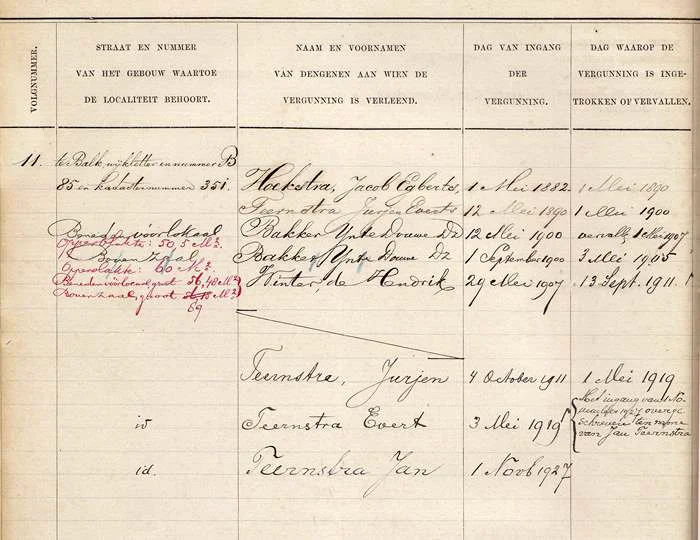 VOLGNUMMER.
STRAAT EN NUMMER
VAN HET GEBOUW WAARTOE
DE LOCALITEIT BEHOORT.
NAAM EN VOORNAMEN
VAN DENGENEN AAN WIEN DE
VERGUNNING IS VERLEEND.
DAG VAN INGANG
DER
VERGUNNING.
DAG WAAROP DE
VERGUNNING IS INGE-
TROKKEN OF VERVALLEN.
11. te Balk, wijkletter en nummer B
85 en kadasternummer 351. Hoekstra, Jacob Egberts, 1 Mei 1882. 1 Mei 1890
Teernstra Jurjen Everts 12 Mei 1890 1 Mei 1900
Beneden voorlokaal Bakker Ynte Douwe Dz 12 Mei 1900 vervalls 1 Mei 1907
Oppervlakte: 50,5 M²
Bovenzaal Bakker, Ynte Douwe Dz 1 September 1900 3 Mei 1905
Oppervlakte: 60 M²
Benedenvoorlocaal groot 56,40 M² Winter, de Hendrik 29 Mei 1907 13 Sept. 1911.
Bovenzaal, groot M²
69
Teernstra, Jurjen 4 October 1911 1 Mei 1919
id Teernstra Evert 3 Mei 1919
Met ingang van 1 No-
vember 1927 overge-
schreven ten name
van Jan Teernstra
id. Teernstra Jan 1 Novb 1927